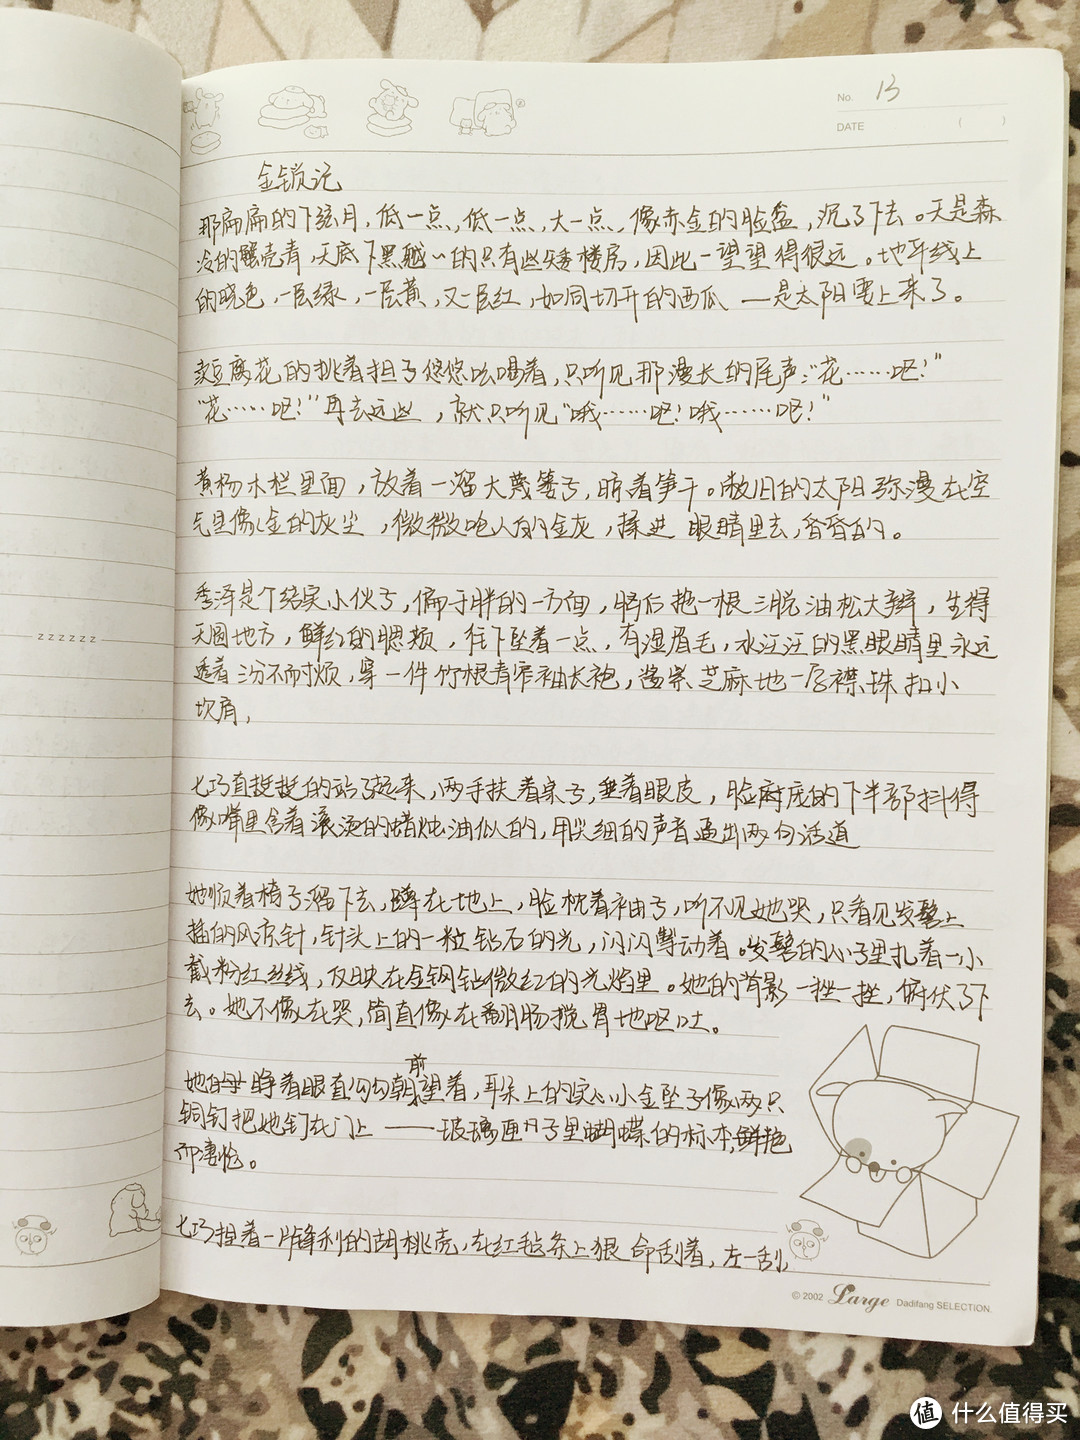 No. 13
DATE ( )
金锁记
那扁扁的下弦月,低一点,低一点,大一点,像赤金的脸盆,沉了下去。天是森
冷的蟹壳青,天底下黑魆〃的只有些矮楼房,因此一望望得很远。地平线上
的晓色,一层绿,一层黄,又一层红,如同切开的西瓜——是太阳要上来了。
卖豆腐花的挑着担子悠悠吆喝着,只听见那漫长的尾声:“花……呕!”
“花……呕!”再去远些,就只听见“哦……呕!哦……呕!”
黄杨木栏里面,放着一溜大篾篓子,晾着笋干。敝旧的太阳弥漫在空
气里像金的灰尘,微微呛人的金灰,揉进眼睛里去,昏昏的。
季泽是个结实小伙子,偏于胖的一方面,脑后拖一根三脱油松大辫,生得
天圆地方,鲜红的腮颊,往下坠着一点,有湿眉毛,水汪汪的黑眼睛里永远
透着三分不耐烦,穿一件竹根青窄袖长袍,酱紫芝麻地一字襟珠扣小
坎肩,
七巧直挺挺的站了起来,两手扶着桌子,垂着眼皮,脸庞的下半部抖得
像嘴里含着滚烫的蜡烛油似的,用尖细的声音逼出两句话道
她顺着椅子溜下去,蹲在地上,脸枕着袖子,听不见她哭,只看见发髻上
插的风凉针,针头上的一粒钻石的光,闪闪掣动着。发髻的心子里扎着一小
截粉红丝线,反映在金钢钻微红的光焰里。她的背影一挫一挫,俯伏了下
去。她不像在哭,简直像在翻肠搅胃地呕吐。
她睁着眼直勾勾朝前望着,耳朵上的实心小金坠子像两只
铜钉把她钉在门上——玻璃匣子里蝴蝶的标本,鲜艳
而凄怆。
七巧捏着一片锋利的胡桃壳,在红毡条上狠命刮着,左一刮
zzzzzz
© 2002 Large Dadifang SELECTION.
值 什么值得买